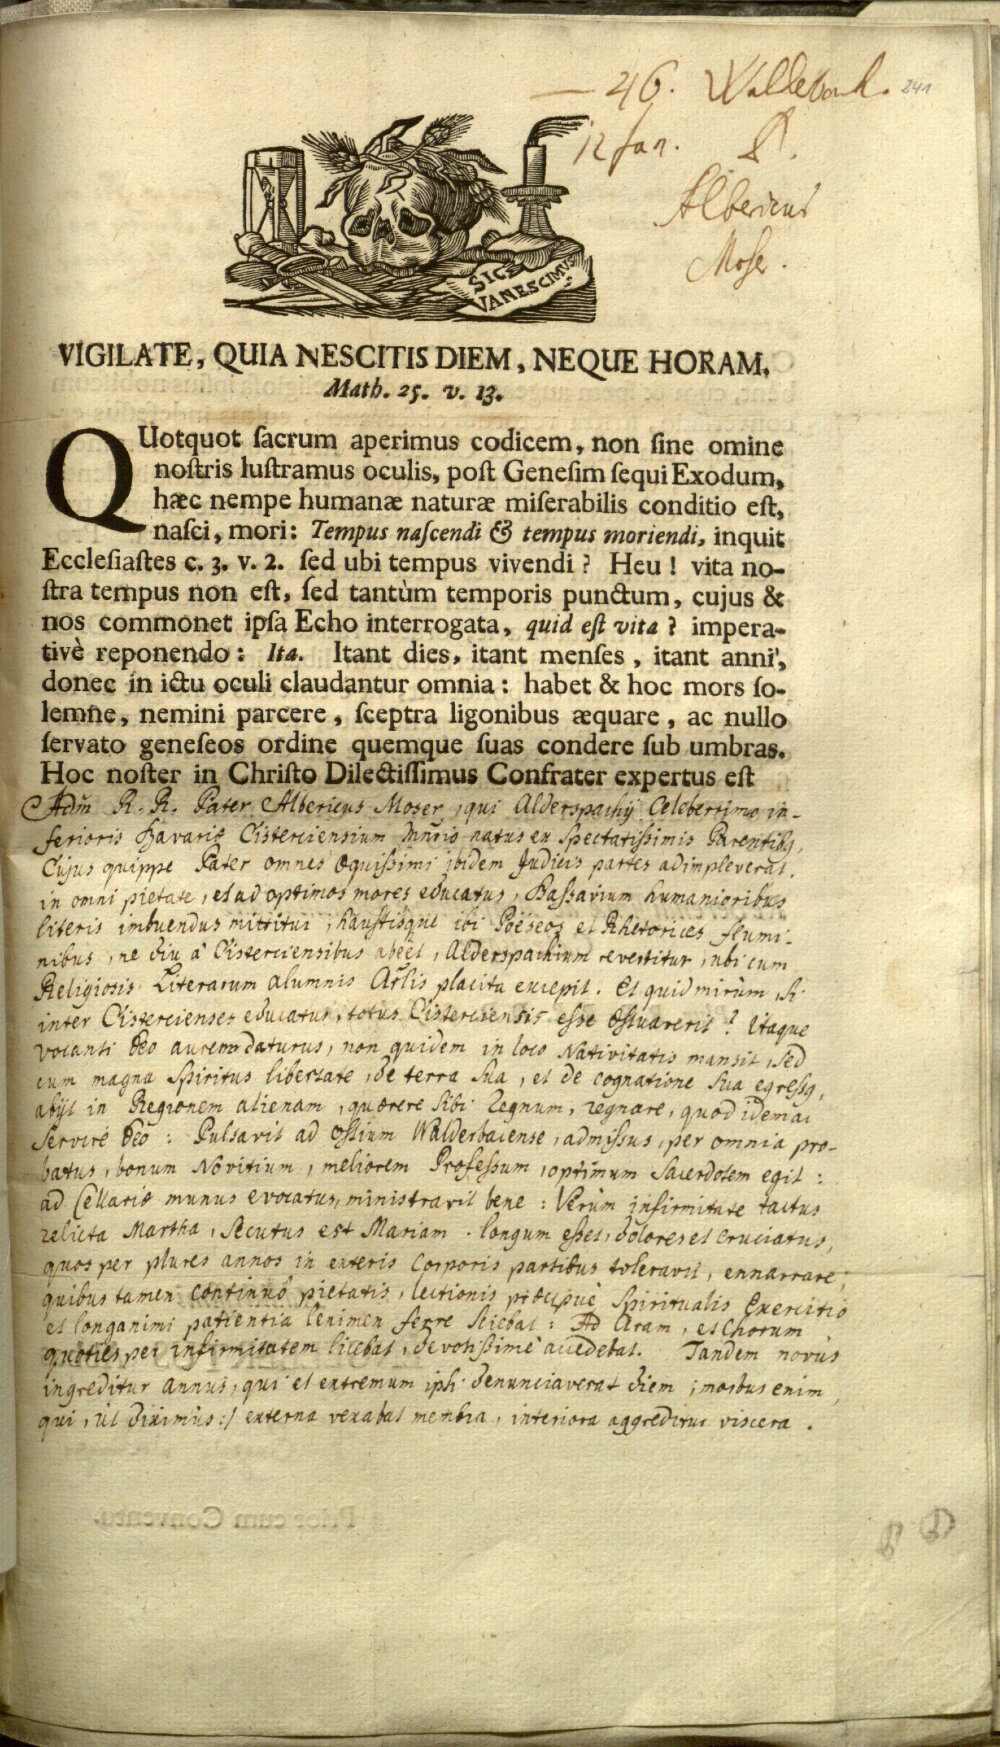 — 46. Walderbach. 241
12 Jan. P.
Albericus
Moser.
SIC
VANESCIMUS
VIGILATE, QUIA NESCITIS DIEM, NEQUE HORAM.
Math. 25. v. 13.
QUotquot ſacrum aperimus codicem, non ſine omine
noſtris luſtramus oculis, poſt Geneſim ſequi Exodum,
hæc nempe humanæ naturæ miſerabilis conditio eſt,
naſci, mori: Tempus naſcendi & tempus moriendi, inquit
Eccleſiaſtes c. 3. v. 2. ſed ubi tempus vivendi? Heu! vita no-
ſtra tempus non eſt, ſed tantùm temporis punctum, cujus &
nos commonet ipſa Echo interrogata, quid eſt vita? impera-
tivè reponendo: Ita. Itant dies, itant menſes, itant anni,
donec in ictu oculi claudantur omnia: habet & hoc mors ſo-
lemne, nemini parcere, ſceptra ligonibus æquare, ac nullo
ſervato geneſeos ordine quemque ſuas condere ſub umbras.
Hoc noſter in Chriſto Dilectiſſimus Confrater expertus eſt
Adm̃ R. R. Pater Albericus Moser, qui Alderspachij Celeberrimo in-
ferioris Bavariæ Cisterciensium Mnr̃io natus ex Spectatißimis Parentibꝰ,
Cujus quippe Pater omnes æquissimi ibidem Judicis partes adimpleverat.
in omni pietate, et ad optimos mores educatus, Passavium humanioribus
literis imbuendus mittitur, haustisque ibi Poëseos et Rhetorices flumi-
nibus, ne diu à Cisterciensibus abeet, Alderspachium revertitur, ubi cum
Religiosis Literarum alumnis Art̃lis placita excepit. Et quid mirùm, si
inter Cistercienses educatus, totus Cisterciensis esse æstuaverit? Itaque
vocanti Deo aurem daturus, non quidem in loco Nativitatis mansit, sed
cum magna Spiritus libertate, de terra sua, et de cognatione sua egreßꝰ,
abijt in Regionem alienam, quærere sibi Regnum, regnare, quod idem ac
servire Deo: Pulsavit ad ostium Walderbacense, admissus, per omnia pro-
batus, bonum Novitium, meliorem Profeßum, optimum Sacerdotem egit:
ad Cellariæ munus evocatus, ministravit bene: Verùm infirmitate tactus
relicta Martha, secutus est Mariam. longum eßet, dolores et cruciatus,
quos per plures annos in exteris corporis partibus toleravit, ennarrare,
quibus tamen continuò pietatis, lectionis præcipuè Spiritualis Exercitio
et longanimi patientia lenimen ferre sciebat: Ad Aram, et Chorum
quoties per infirmitatem licebat, devotißimè accedebat. Tandem novus
ingreditur annus, qui et extremum ipsi denunciaverat diem; morbus enim
qui, ut diximus:/ externa vexabat membra, interiora aggreditur viscera.